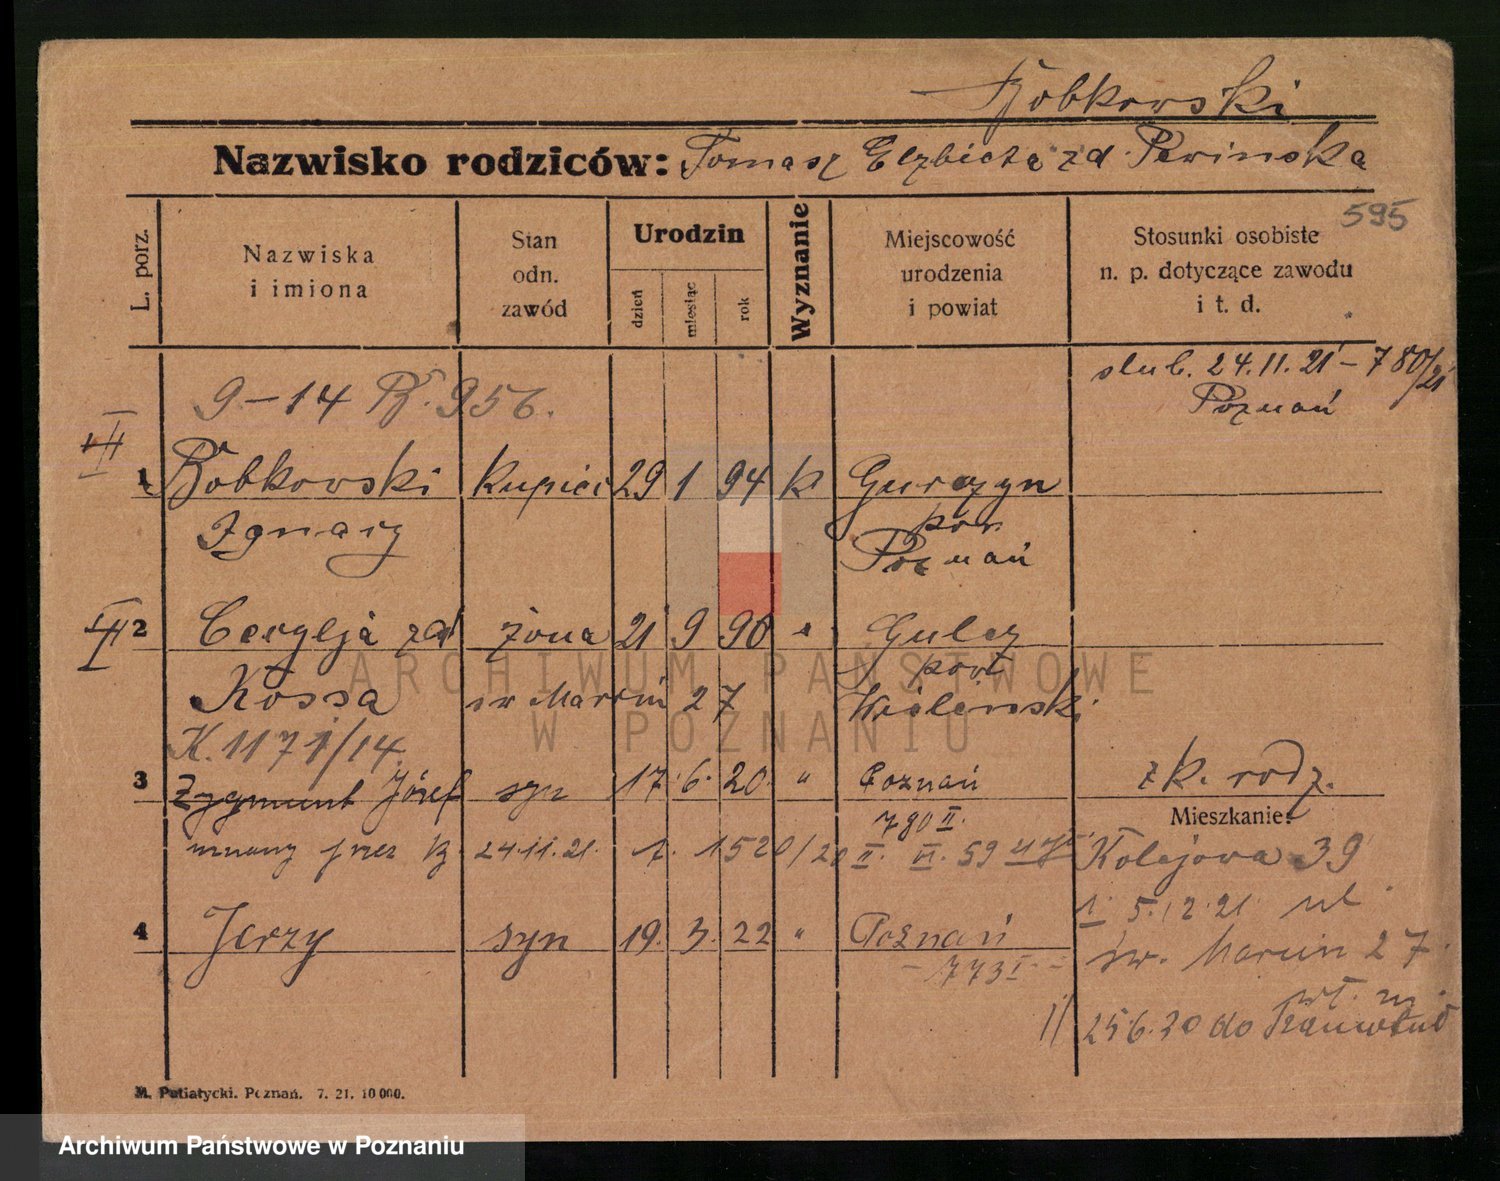 Bobkowski
Nazwisko rodziców: Tomasz Elzbieta zd. Perinska
595
L. porz.
Nazwiska i imiona
Stan odn. zawód
Urodzin
dzień
miesiąc
rok
Wyznanie
Miejscowość urodzenia i powiat
Stosunki osobiste n. p. dotyczące zawodu i t. d.
slub. 24.11.21 – 780/21
Poznań
9–14 B. 956.
III
1 Bobkowski kupiec 29 1 94 k Gurczyn
Ignacy pow.
Poznań
III
2 Cecylja zd żona 21 9 90 " Gulcz
Kossa św Marcin 27 pow
Wieleński
K. 1171/14.
3 Zygmunt Józef syn 17. 6. 20. " Poznań
zk. rodz.
Mieszkanie:
780 II.
uznany przez B. 24.11.21. 1520/20 II. VI. 59
Kolejowa 39
5.12.21 ul
4 Jerzy syn 19. 3. 22 " Poznań
św. Marcin 27.
– 773 I. –
25.6.30 do
M. Putiatycki. Poznań. 7. 21. 10 000.
ARCHIWUM PAŃSTWOWE
W POZNANIU
Archiwum Państwowe w Poznaniu